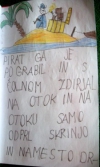 PIRAT GA JE
POGRABIL IN S
ČOLNOM ZDIRJAL
NA OTOK IN NA
OTOKU SAMO
ODPRL SKRINJO
IN NAMESTO DR